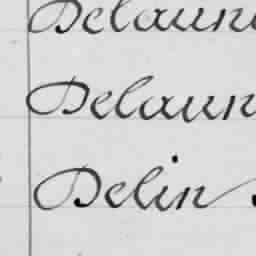 Delaun
Delaun
Delin